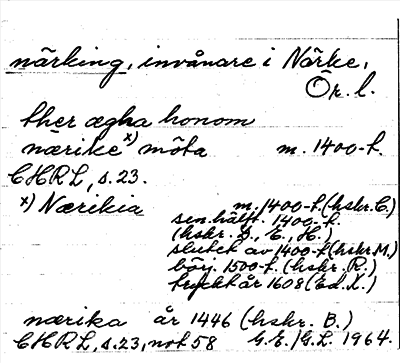 närking, invånare i Närke,
Ör. l.
ther ægha honom
nærike x) möta m. 1400-t.
CHRL, s. 23.
x) Nærikia m. 1400-t. (hskr. C.)
sen. hälft. 1400-t.
(hskr. D., E., H.)
slutet av 1400-t (hskr. M.)
börj. 1500-t. (hskr. R.)
tryckt år 1608 (Ed. X.)
nærika år 1446 (hskr. B.)
CHRL, s. 23, not 58 G.E./G.L. 1964.